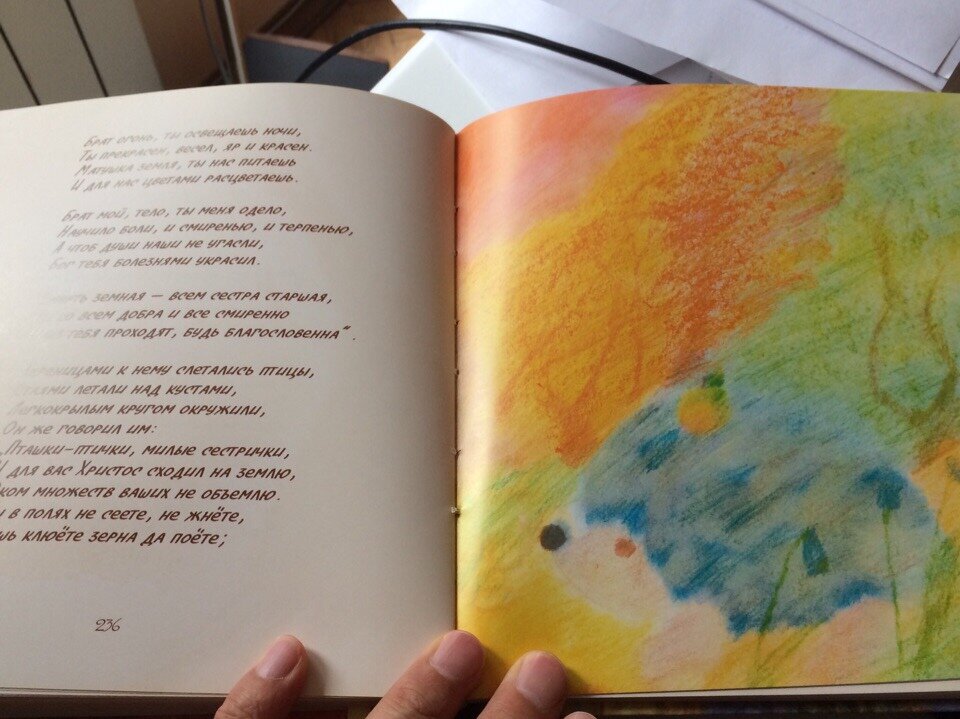 Брат огонь, ты освещаешь ночи,
Ты прекрасен, весел, яр и красен.
Матушка земля, ты нас питаешь
И для нас цветами расцветаешь.
Брат мой, тело, ты меня одело,
Научило боли, и смиренью, и терпенью,
А чтоб души наши не угасли,
Бог тебя болезнями украсил.
земная — всем сестра старшая,
всем добра и все смиренно
тебя проходят, будь благословенна“.
к нему слетались птицы,
летали над кустами,
Легкокрылым кругом окружили,
Он же говорил им:
„Пташки-птички, милые сестрички,
И для вас Христос сходил на землю,
множеств ваших не объемлю.
в полях не сеете, не жнёте,
клюёте зерна да поёте;
236